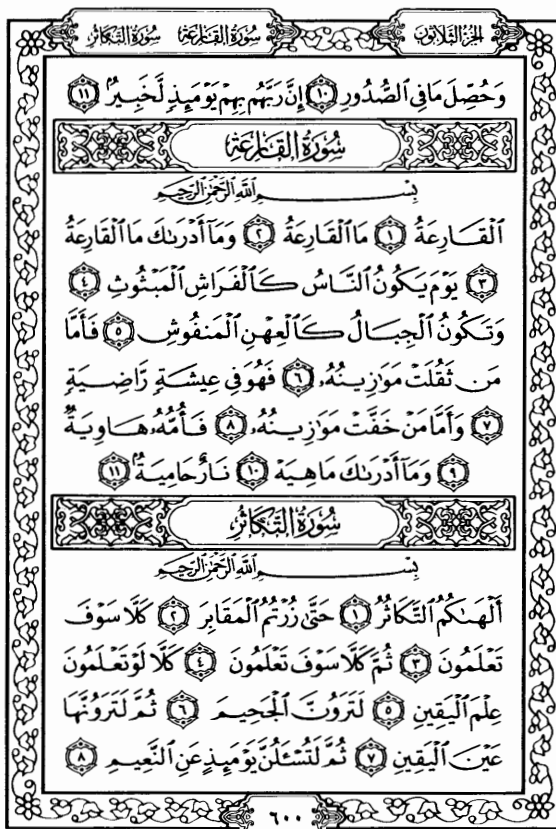 سُورَةُ القَارِعَةِ سُورَةُ التَّكَاثُرِ الجُزْءُ الثَّلَاثُونَ
وَحُصِّلَ مَا فِي ٱلصُّدُورِ ١٠ إِنَّ رَبَّهُم بِهِمۡ يَوۡمَئِذٖ لَّخَبِيرُۢ ١١
سُورَةُ القَارِعَةِ
بِسۡمِ ٱللَّهِ ٱلرَّحۡمَٰنِ ٱلرَّحِيمِ
ٱلۡقَارِعَةُ ١ مَا ٱلۡقَارِعَةُ ٢ وَمَآ أَدۡرَىٰكَ مَا ٱلۡقَارِعَةُ
٣ يَوۡمَ يَكُونُ ٱلنَّاسُ كَٱلۡفَرَاشِ ٱلۡمَبۡثُوثِ ٤
وَتَكُونُ ٱلۡجِبَالُ كَٱلۡعِهۡنِ ٱلۡمَنفُوشِ ٥ فَأَمَّا
مَن ثَقُلَتۡ مَوَٰزِينُهُۥ ٦ فَهُوَ فِي عِيشَةٖ رَّاضِيَةٖ
٧ وَأَمَّا مَنۡ خَفَّتۡ مَوَٰزِينُهُۥ ٨ فَأُمُّهُۥ هَاوِيَةٞ
٩ وَمَآ أَدۡرَىٰكَ مَا هِيَهۡ ١٠ نَارٌ حَامِيَةُۢ ١١
سُورَةُ التَّكَاثُرِ
بِسۡمِ ٱللَّهِ ٱلرَّحۡمَٰنِ ٱلرَّحِيمِ
أَلۡهَىٰكُمُ ٱلتَّكَاثُرُ ١ حَتَّىٰ زُرۡتُمُ ٱلۡمَقَابِرَ ٢ كَلَّا سَوۡفَ
تَعۡلَمُونَ ٣ ثُمَّ كَلَّا سَوۡفَ تَعۡلَمُونَ ٤ كَلَّا لَوۡ تَعۡلَمُونَ
عِلۡمَ ٱلۡيَقِينِ ٥ لَتَرَوُنَّ ٱلۡجَحِيمَ ٦ ثُمَّ لَتَرَوُنَّهَا
عَيۡنَ ٱلۡيَقِينِ ٧ ثُمَّ لَتُسۡـَٔلُنَّ يَوۡمَئِذٍ عَنِ ٱلنَّعِيمِ ٨
٦٠٠